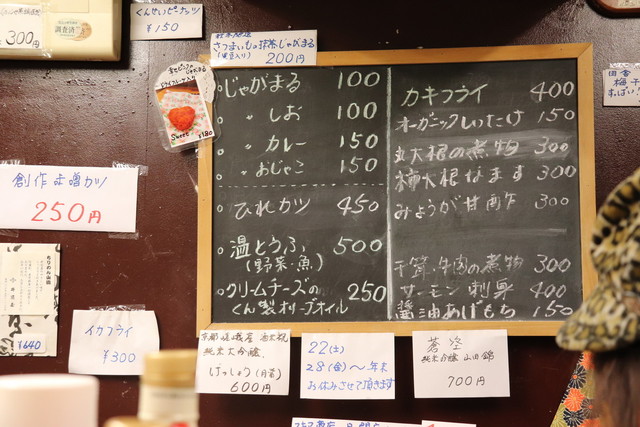 300円
調査済
くんせいピーナッツ
¥150
さつまいもの抹茶じゃがまる
200円
Sweet
¥180
創作味噌カツ
250円
¥640
イカフライ
¥300
じゃがまる 100
〃 しお 100
〃 カレー 150
〃 おじゃこ 150
ひれカツ 450
温とうふ 500
(野菜・魚)
クリームチーズの
くん製オリーブオイル 250
カキフライ 400
オーガニックしいたけ 150
丸大根の煮物 300
柿大根なます 300
みょうが甘酢 300
干筍・牛肉の煮物 300
サーモン刺身 400
醤油あげもち 150
田舎
梅干
すっぱい!
純米大吟醸
げっしょう(月常)
600円
22(土)
28(金)〜年末
お休みさせて頂きます
蒼空
純米吟醸 山田錦
700円